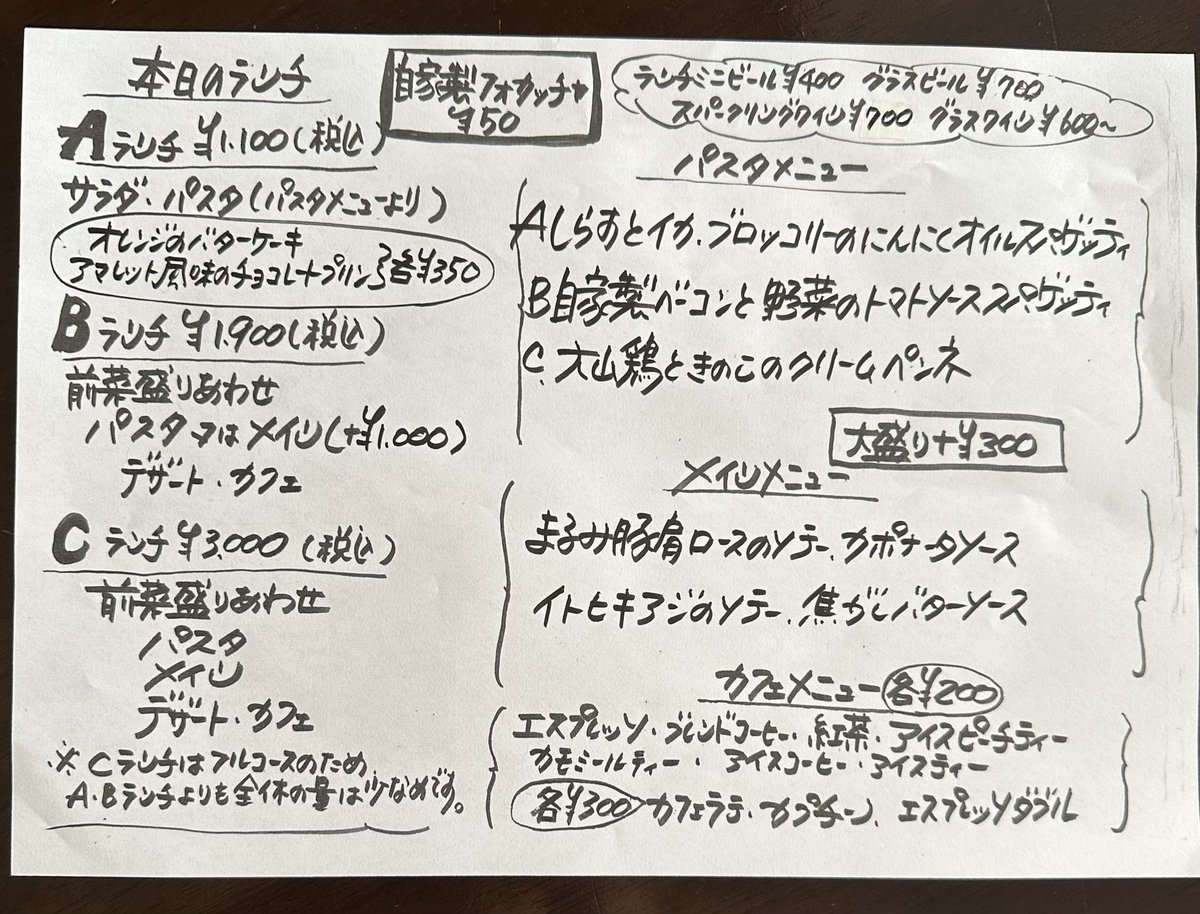 本日のランチ
Aランチ ¥1.100(税込)
サラダ・パスタ(パスタメニューより)
オレンジのバターケーキ
アマレット風味のチョコレートプリン}各¥350
Bランチ ¥1.900(税込)
前菜盛りあわせ
パスタ又はメイン(+¥1.000)
デザート・カフェ
Cランチ ¥3.000(税込)
前菜盛りあわせ
パスタ
メイン
デザート・カフェ
※Cランチはフルコースのため
A・Bランチよりも全体の量は少なめです。
自家製フォカッチャ
¥50
ランチミニビール¥400 グラスビール¥700
スパークリングワイン¥700 グラスワイン¥600〜
パスタメニュー
Aしらすとイカ、ブロッコリーのにんにくオイルスパゲッティ
B自家製ベーコンと野菜のトマトソーススパゲッティ
C.大山鶏ときのこのクリームペンネ
大盛り+¥300
メインメニュー
まるみ豚肩ロースのソテー、カポナータソース
イトヒキアジのソテー、焦がしバターソース
カフェメニュー 各¥200
エスプレッソ・ブレンドコーヒー・紅茶・アイスピーチティー
カモミールティー・アイスコーヒー・アイスティー
各¥300 カフェラテ・カプチーノ、エスプレッソダブル